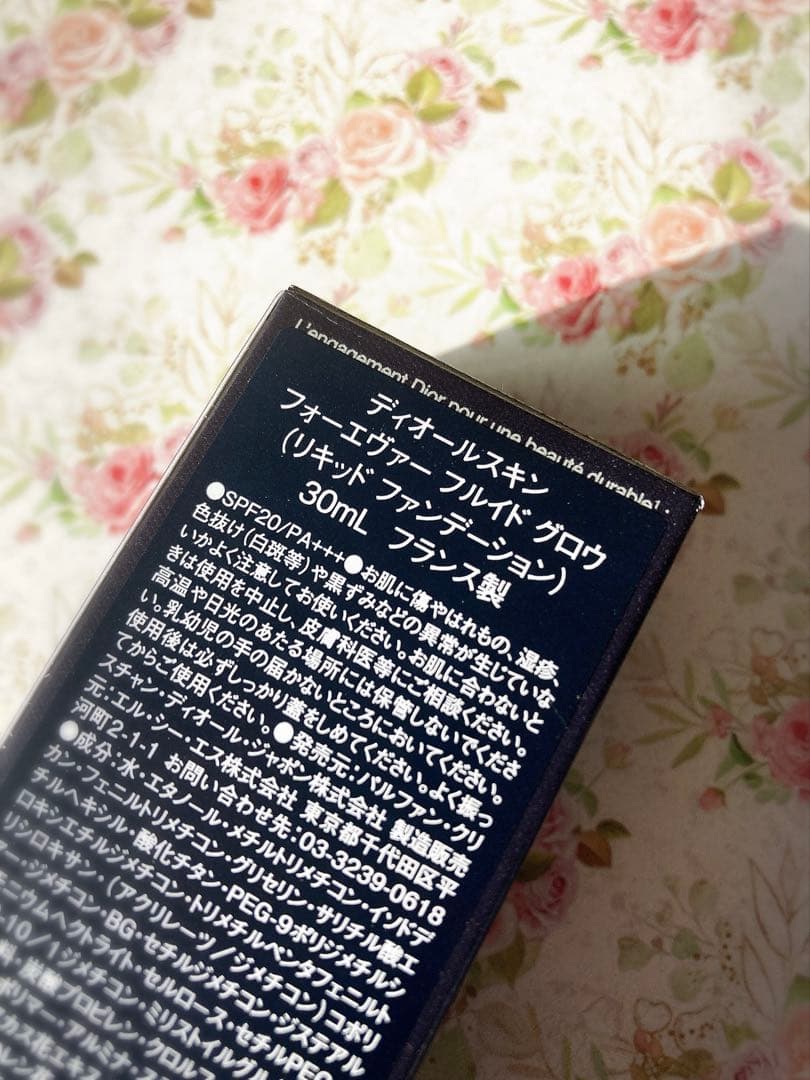 L'engagement Dior pour une beauté durable¹.
ディオールスキン
フォーエヴァー フルイド グロウ
(リキッド ファンデーション)
30mL フランス製
●SPF20/PA+++●お肌に傷やはれもの、湿疹、
色抜け(白斑等)や黒ずみなどの異常が生じていな
いかよく注意してお使いください。お肌に合わないと
きは使用を中止し、皮膚科医等にご相談ください。
高温や日光のあたる場所には保管しないでくださ
い。乳幼児の手の届かないところにおいてください。
使用後は必ずしっかり蓋をしめてください。よく振っ
てからご使用ください。●発売元:パルファン・クリ
スチャン・ディオール・ジャポン株式会社 製造販売
元:エル・シー・エス株式会社 東京都千代田区平
河町2-1-1 お問い合わせ先:03-3239-0618
●成分:水・エタノール・メチルトリメチコン・イソドデ
カン・フェニルトリメチコン・グリセリン・サリチル酸エ
チルヘキシル・酸化チタン・PEG-9ポリジメチルシ
ロキシエチルジメチコン・トリメチルペンタフェニルト
リシロキサン・(アクリレーツ/ジメチコン)コポリ
ー・ジメチコン・BG・セチルジメチコン・ジステアル
ニウムヘクトライト・セルロース・セチルPEG
-10/1ジメチコン・ミリストイルグル
炭酸プロピレン・クロルフ
ポリマー・アルミナ・ス
カズ花エキス